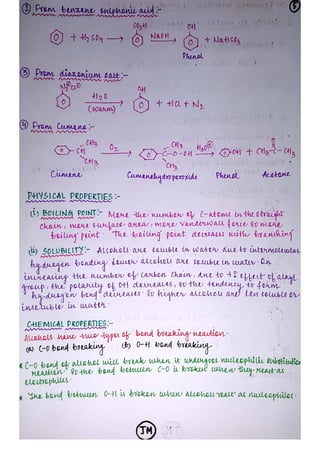 ② From benzene sulphonic acid :-
SO₃H OH
+ H₂SO₄ → NaOH → + NaHSO₃
Phenol
③ From diazonium salt :-
N₂⁺Cl⁻ OH
+ H₂O (Warm) → + HCl + N₂
④ From Cumene :-
CH₃ CH₃ O
CH O₂ → C-O-OH H₃O⊕ → OH + CH₃-C-CH₃
CH₃ CH₃
Cumene Cumenehydroperoxide Phenol Acetone
PHYSICAL PROPERTIES :-
(i) BOILING POINT:- More the number of C-atoms in the straight
chain, more surface area, more vanderwall force so more
boiling point. The boiling point decreases with branching
(ii) SOLUBILITY:- Alcohols are soluble in water due to intermolecular
hydrogen bonding lower alcohols are soluble in water. On
increasing the number of carbon chain, due to +I effect of alkyl
group, the polarity of OH decreases, so the tendency to form
hydrogen bond decreases. So higher alcohols are less soluble or
insoluble in water.
CHEMICAL PROPERTIES:-
Alcohols have two types of bond breaking reaction.
(a) C-O bond breaking (b) O-H bond breaking
* C-O bond of alcohol will break when it undergoes nucleophilic substitution
reaction. So the bond between C-O is broken when they react as
electrophiles.
* The bond between O-H is broken when alcohols react as nucleophiles.
JM